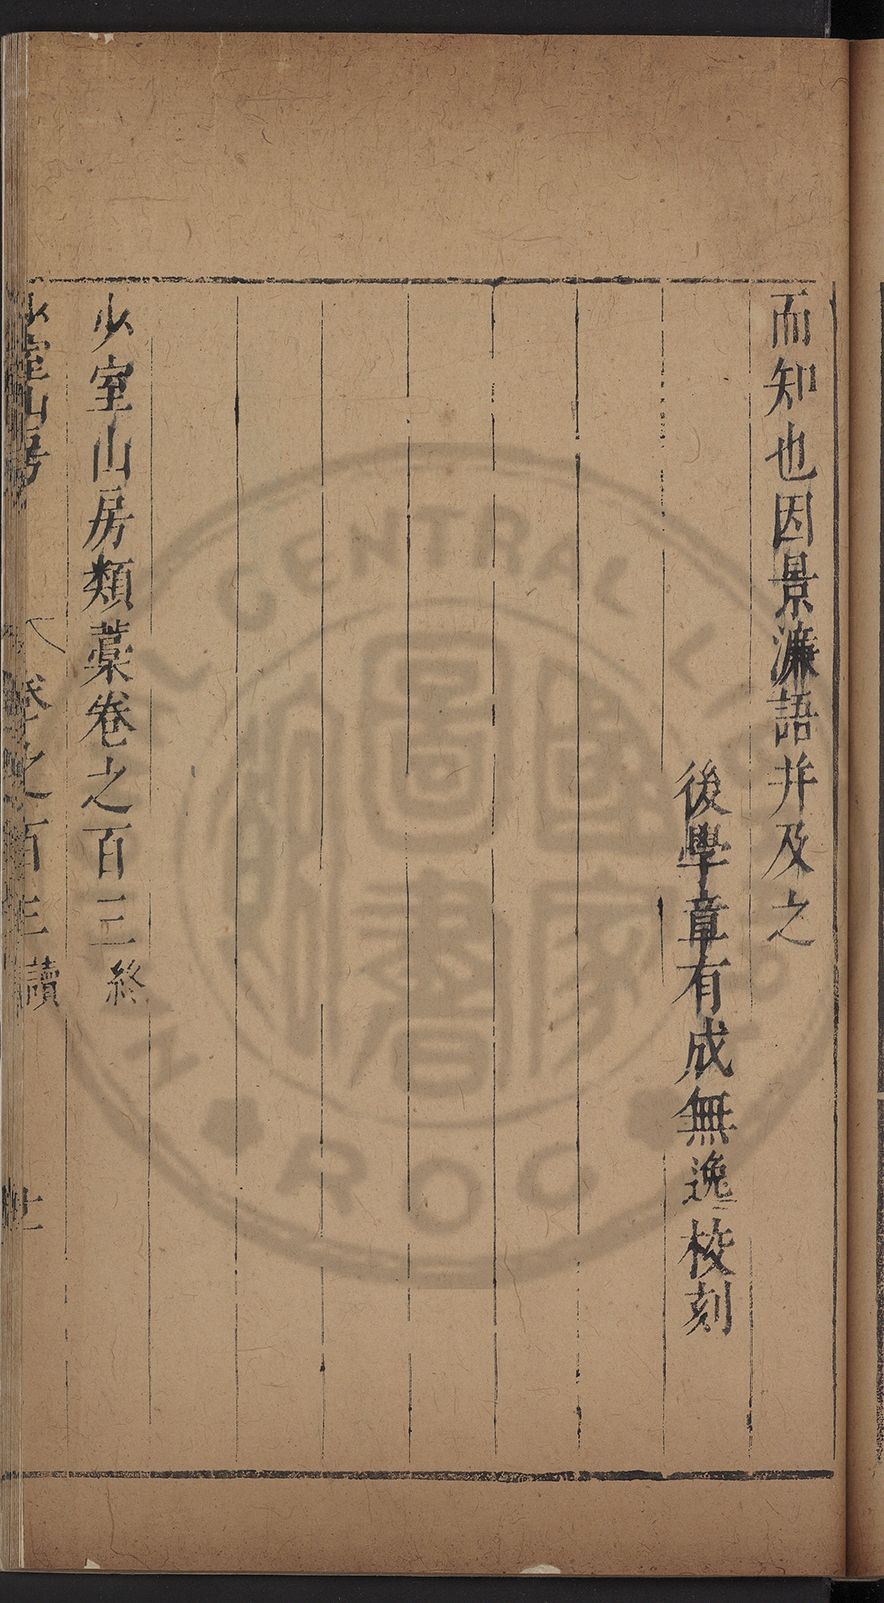 而知也因景濂語并及之
後學章有成無逸校刻
少室山房類藁卷之百三終
少室山房 卷之百三 讀
CENTRAL L
ROC
國家
圖書